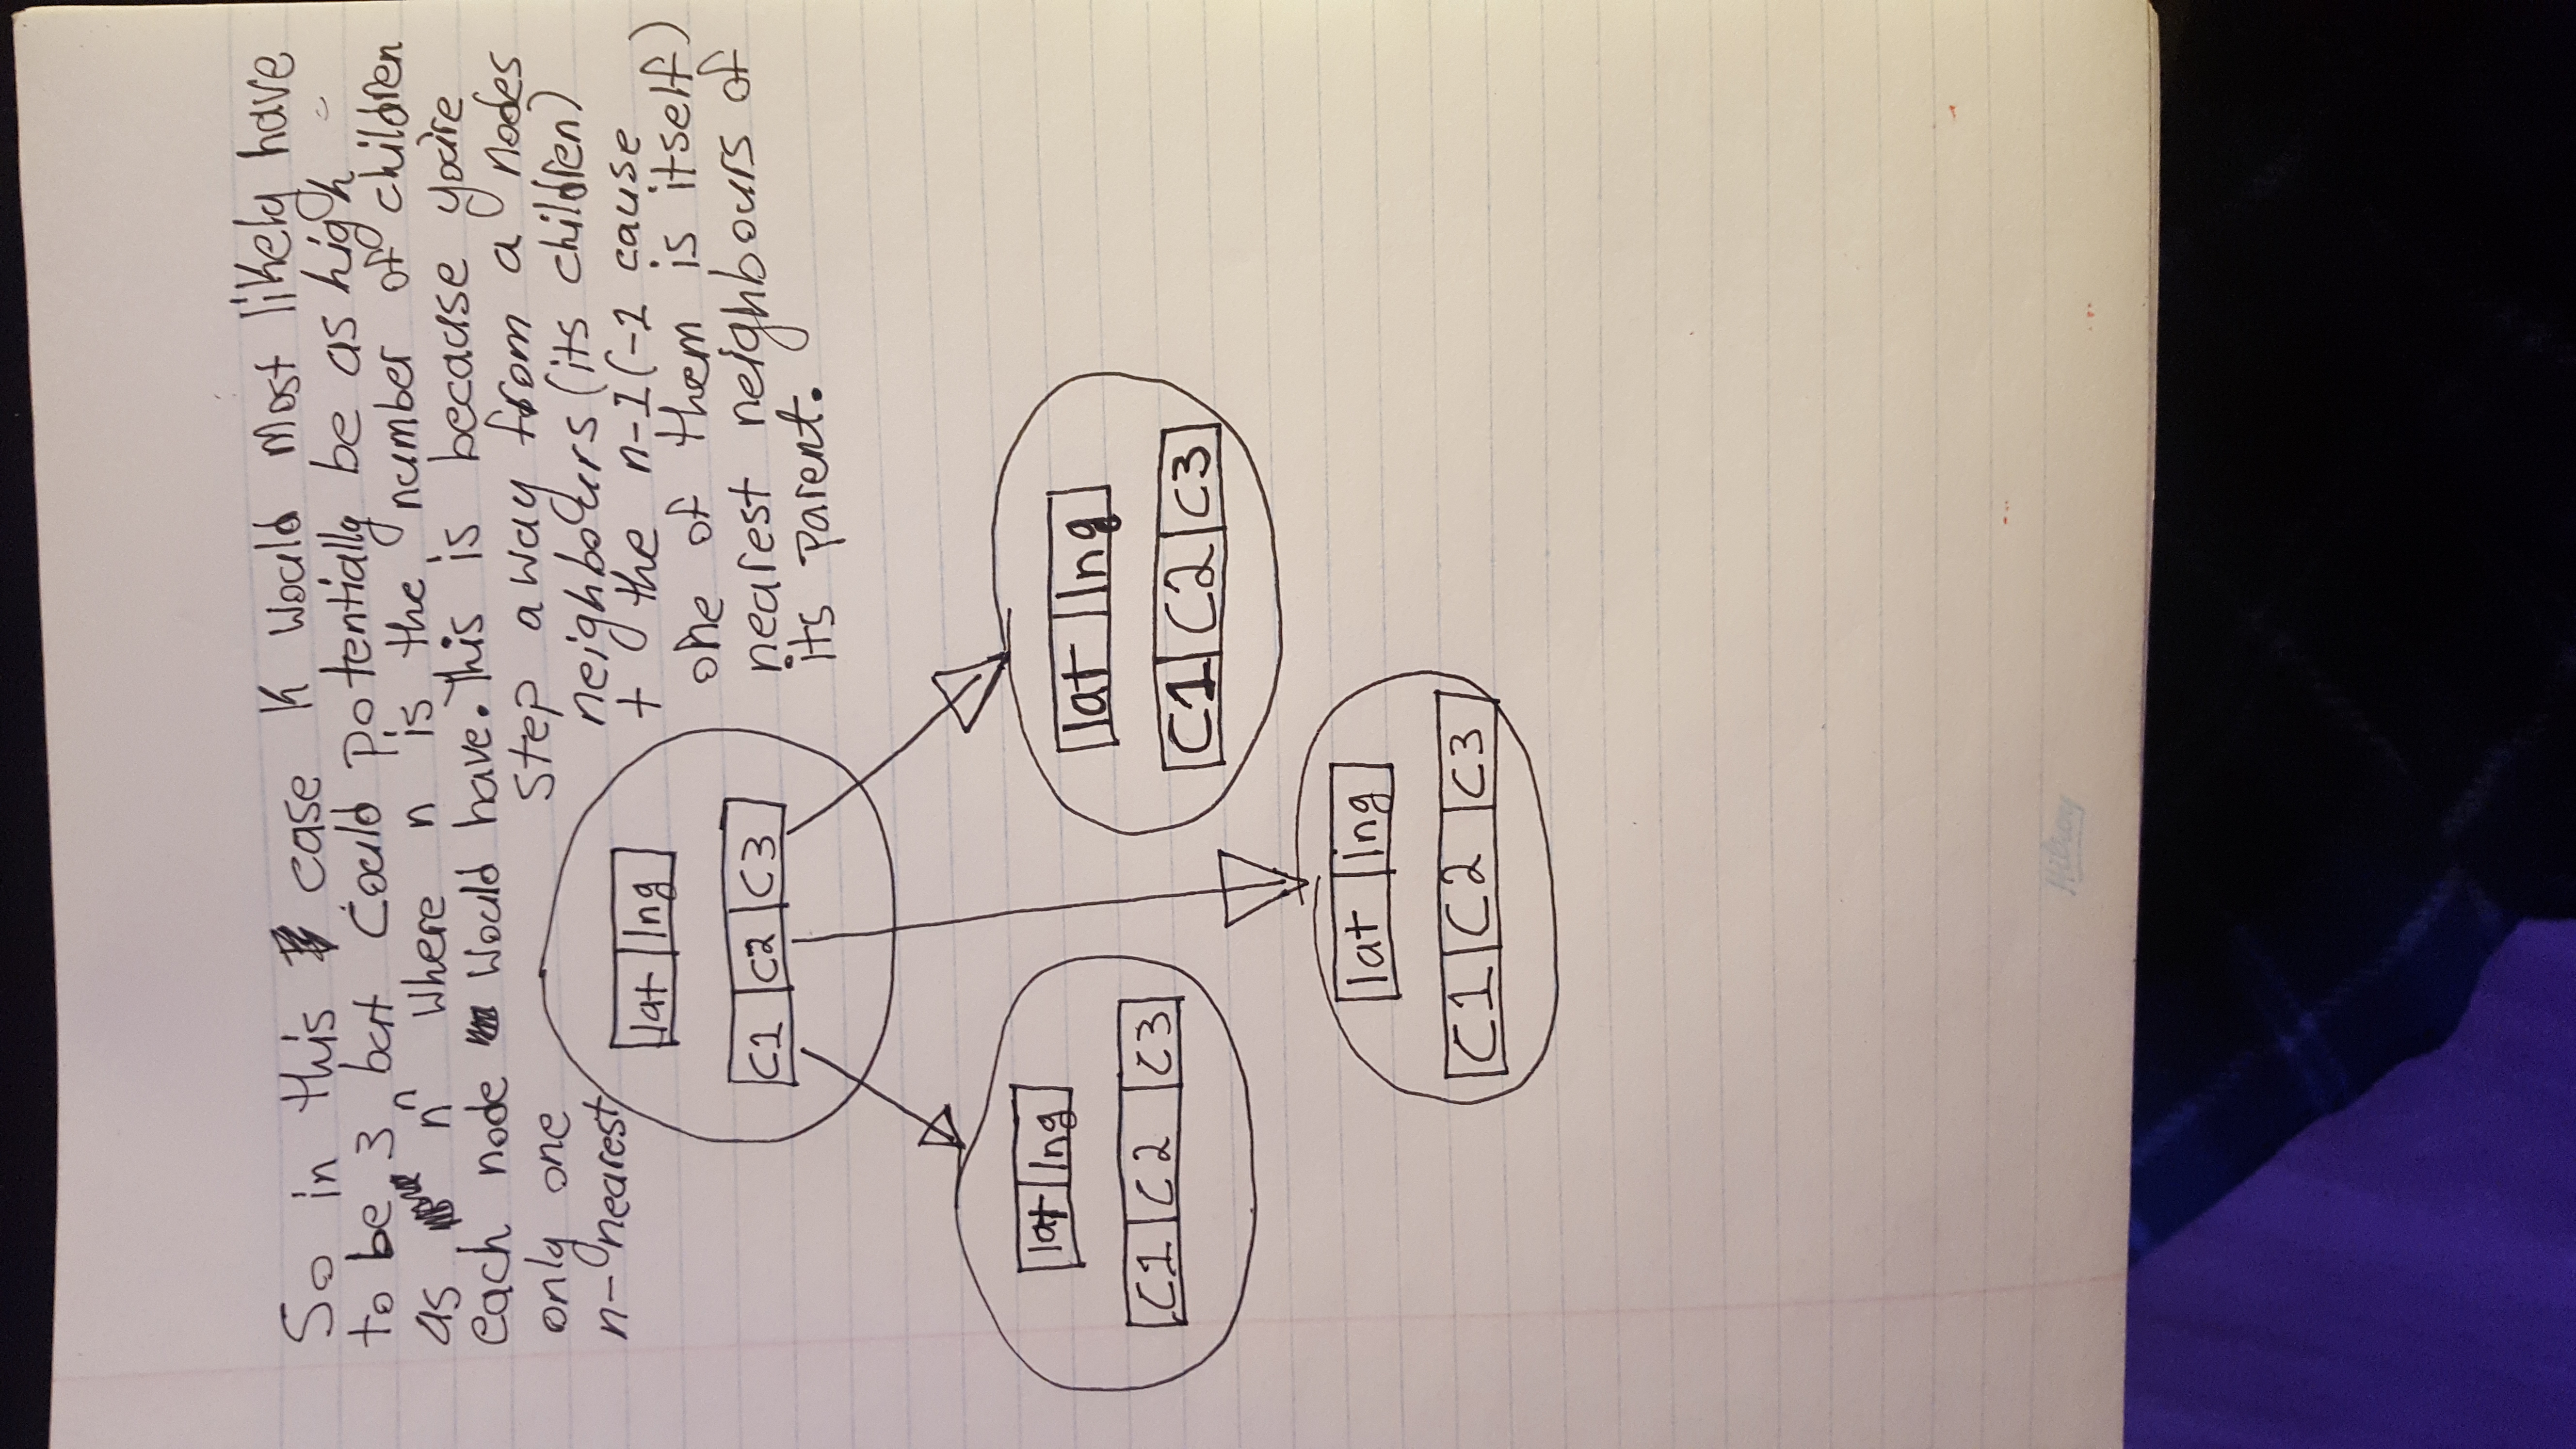 So in this case K would most likely have
to be 3 but could potentially be as high
as nⁿ where n is the number of children
each node would have. This is because you're
only one step away from a nodes
n-nearest neighbours (its children)
+ the n-1 (-1 cause
one of them is itself)
nearest neighbours of
its parent.
lat lng
C1 C2 C3
lat lng
C1 C2 C3
lat lng
C1 C2 C3
lat lng
C1 C2 C3
Hilroy